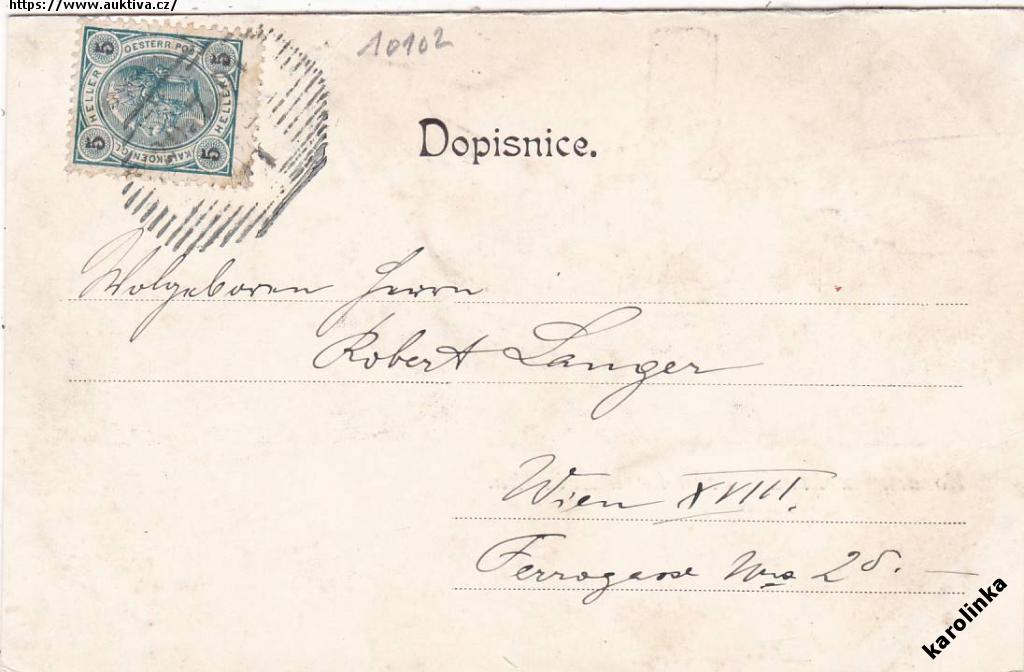 https://www.auktiva.cz/
10102
5 5
OESTERR. POST
HELLER HELLER
KAIS. KOENIGL.
5 5
Dopisnice.
Wolgeboren Herrn
Robert Langer
Wien XVIII.
Ferrogasse Nro
karolinka